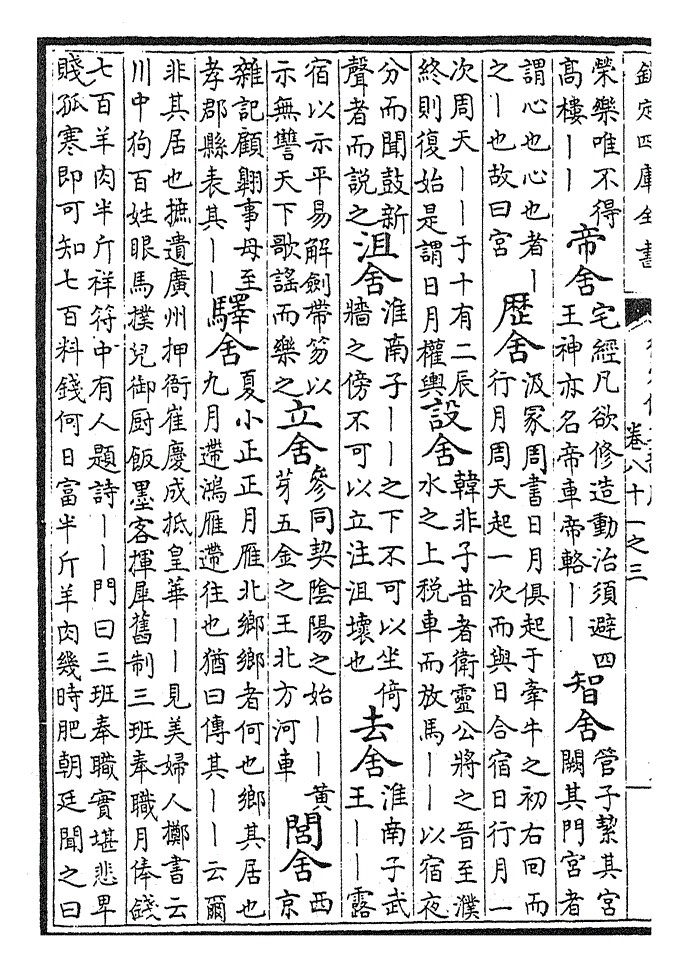 欽定四庫全書
卷八十一之三
榮樂唯不得
高樓丨丨
帝舍
宅經凡欲修造動治須避四
王神亦名帝車帝輅丨丨
智舍
管子絜其宮
闕其門宮者
謂心也心也者丨
之丨也故曰宮
歴舍
汲冢周書日月俱起于牽牛之初右回而
行月周天起一次而與日合宿日行月一
次周天丨丨于十有二辰
終則復始是謂日月權輿
設舍
韓非子昔者衛靈公將之晉至濮
水之上税車而放馬丨丨以宿夜
分而聞鼓新
聲者而説之
沮舍
淮南子丨丨之下不可以坐倚
牆之傍不可以立注沮壞也
去舍
淮南子武
王丨丨露
宿以示平易解劍帶笏以
示無讐天下歌謠而樂之
立舍
參同契陰陽之始丨丨黄
芽五金之王北方河車
閭舍
西
京
雜記顧翺事母至
孝郡縣表其丨丨
驛舍
夏小正正月雁北鄉鄉者何也鄉其居也
九月遰鴻雁遰往也猶曰傳其丨丨云爾
非其居也摭遺廣州押衙崔慶成抵皇華丨丨見美婦人擲書云
川中狗百姓眼馬撲兒御厨飯墨客揮犀舊制三班奉職月俸錢
七百羊肉半斤祥符中有人題詩丨丨門曰三班奉職實堪悲卑
賤孤寒即可知七百料錢何日富半斤羊肉幾時肥朝廷聞之曰